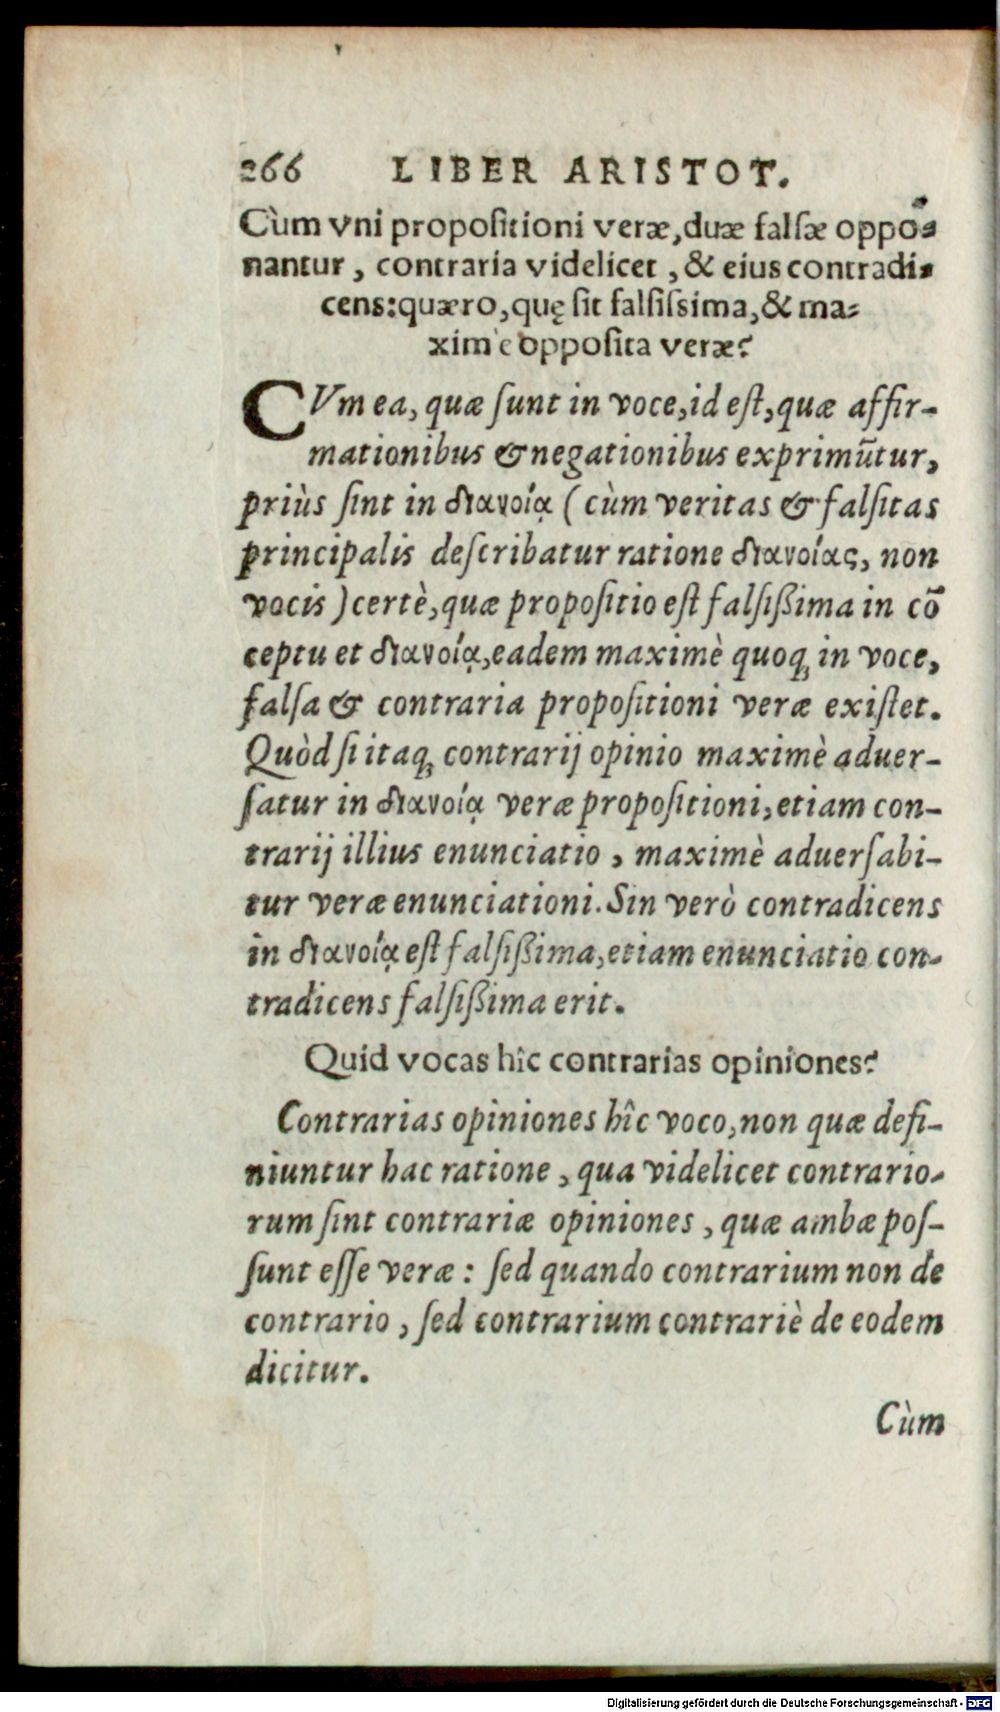 266 LIBER ARISTOT.
Cùm vni propositioni veræ, duæ falsæ oppo-
nantur, contraria videlicet, & eius contradi-
cens: quæro, quę sit falsissima, & ma-
ximè opposita veræ?
CVm ea, quæ sunt in voce, id est, quæ affir-
mationibus & negationibus exprimũtur,
priùs sint in διανοίᾳ (cùm veritas & falsitas
principalis describatur ratione διανοίας, non
vocis) certè, quæ propositio est falsißima in cõ
ceptu et διανοίᾳ, eadem maximè quoq; in voce,
falsa & contraria propositioni veræ existet.
Quòd si itaq; contrarij opinio maximè aduer-
satur in διανοίᾳ veræ propositioni, etiam con-
trarij illius enunciatio, maximè aduersabi-
tur veræ enunciationi. Sin verò contradicens
in διανοίᾳ est falsißima, etiam enunciatio con-
tradicens falsißima erit.
Quid vocas hîc contrarias opiniones?
Contrarias opiniones hîc voco, non quæ defi-
niuntur hac ratione, qua videlicet contrario-
rum sint contrariæ opiniones, quæ ambæ pos-
sunt esse veræ: sed quando contrarium non de
contrario, sed contrarium contrariè de eodem
dicitur.
Cùm
Digitalisierung gefördert durch die Deutsche Forschungsgemeinschaft - DFG